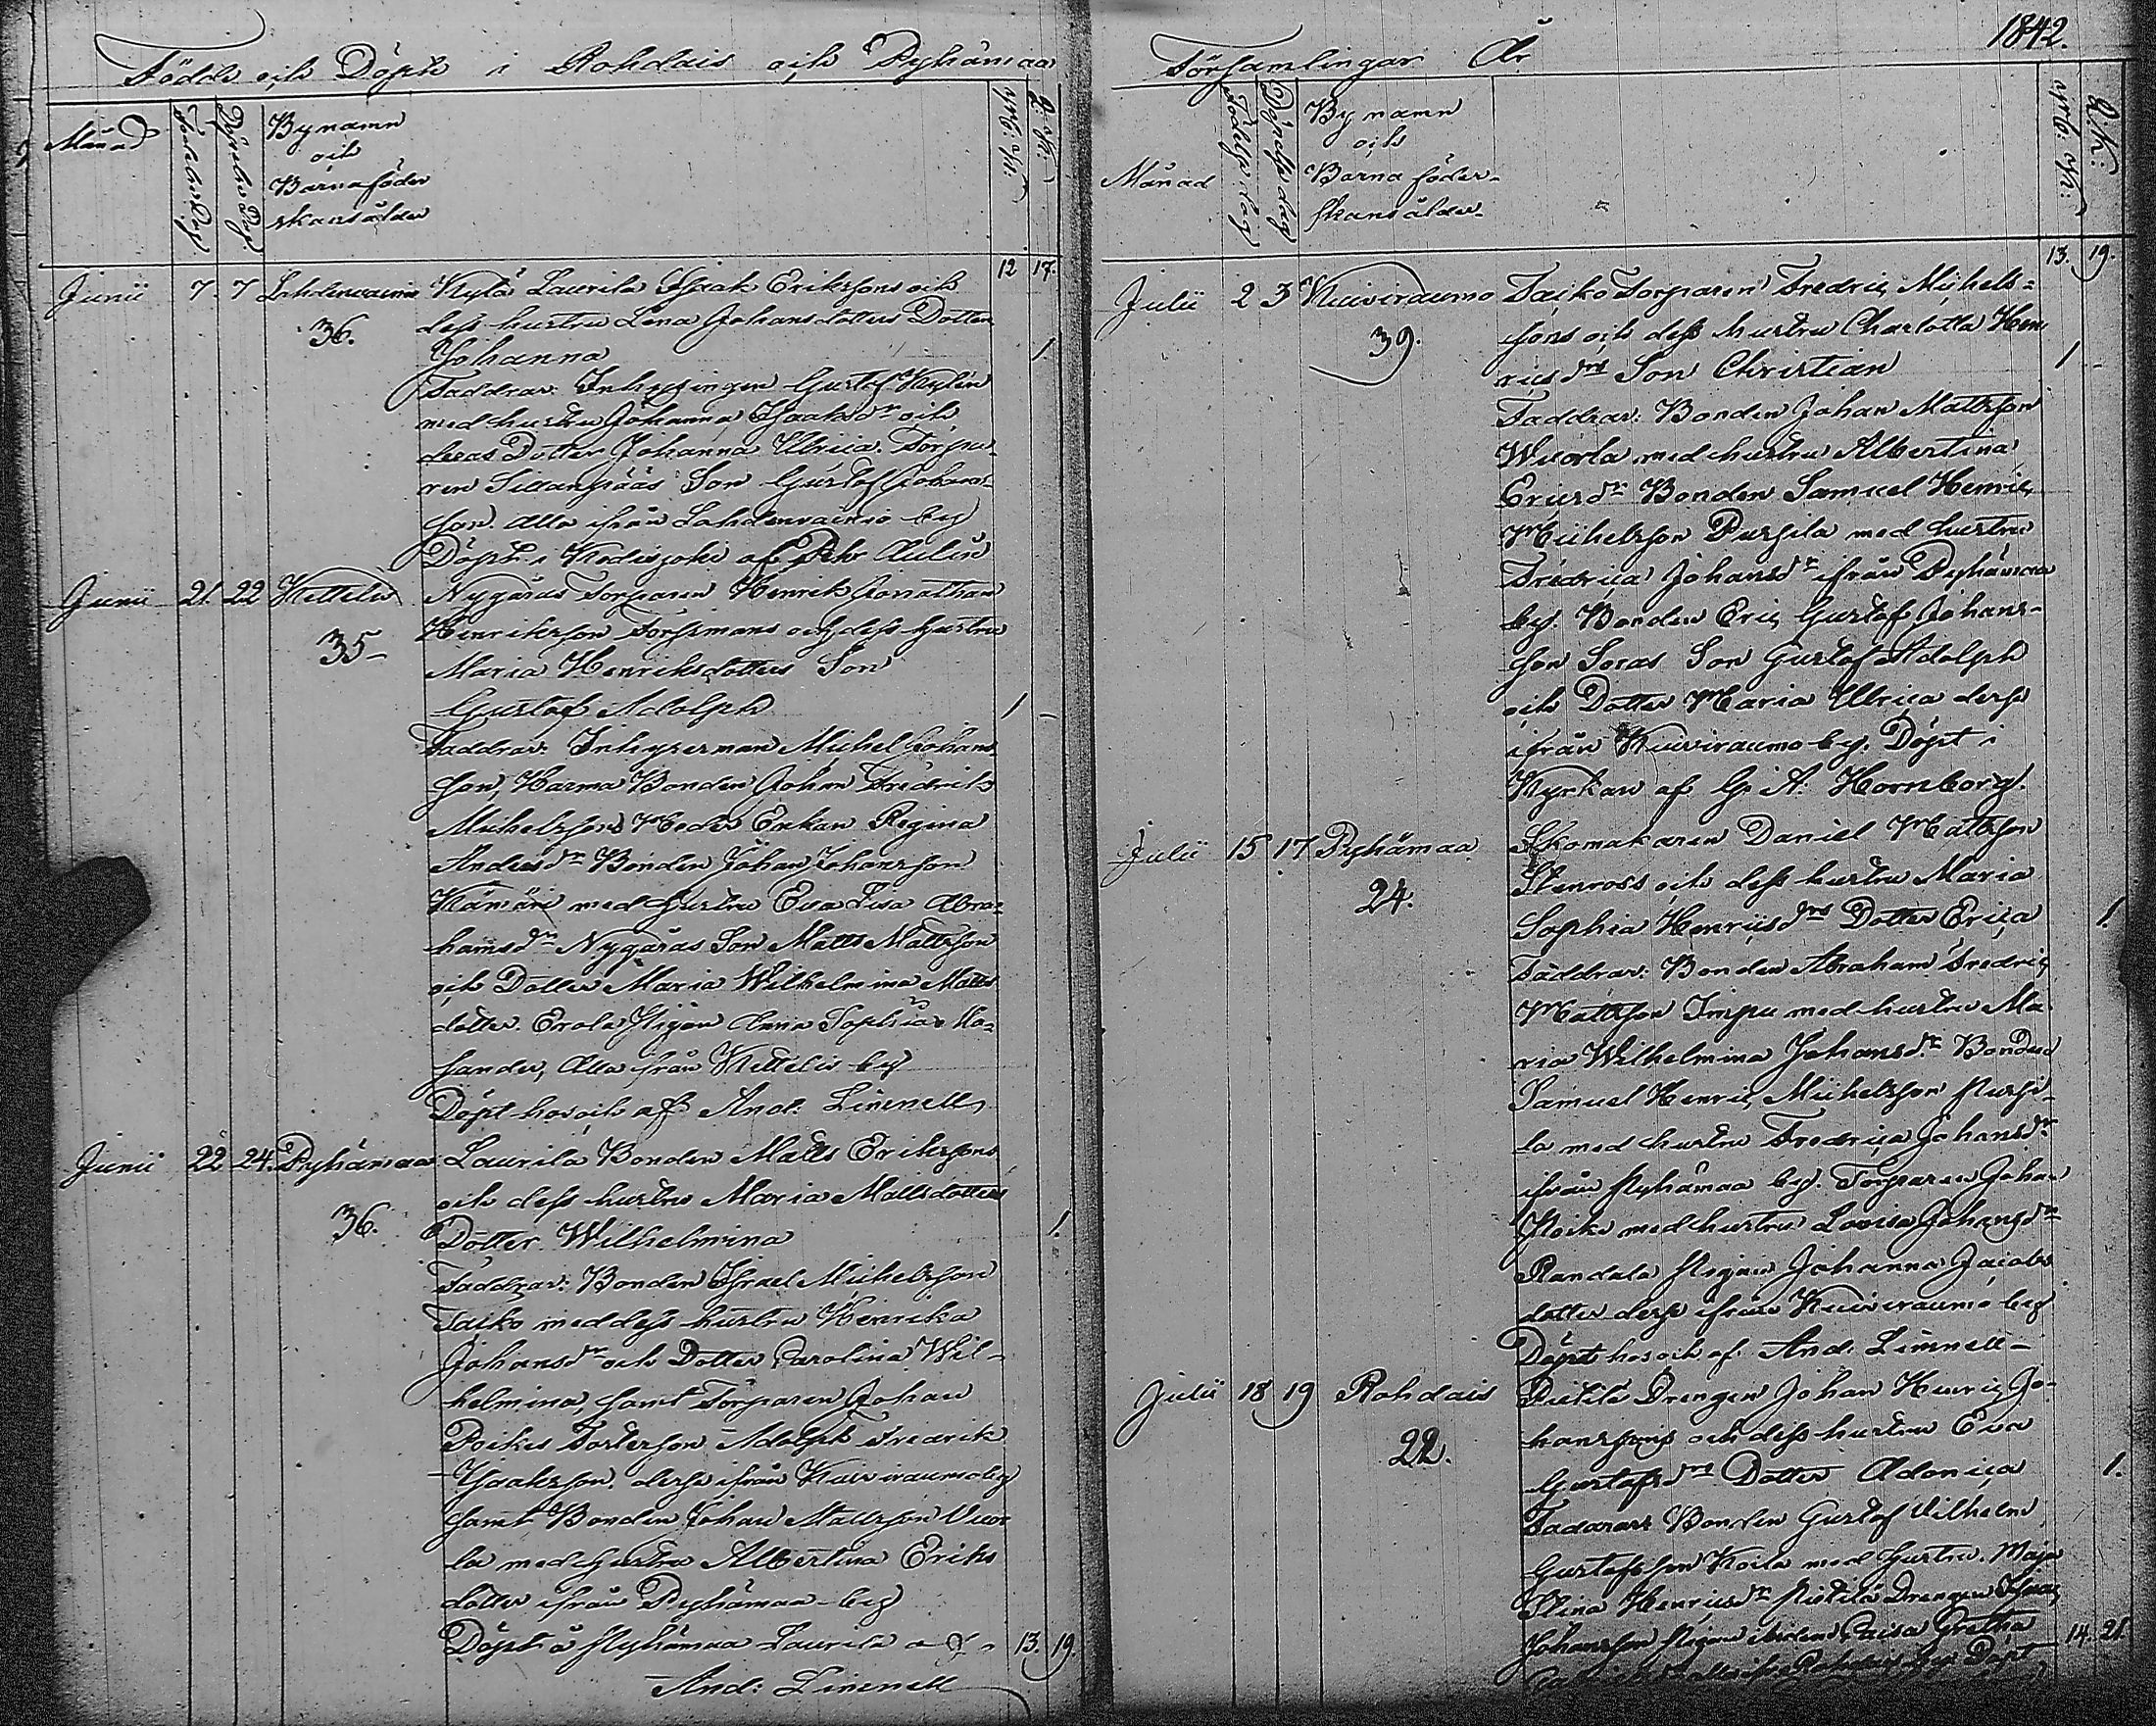 Födde och Döpte i Rohdais och Pyhämaa
Månad
Födelse Dag
Döpelse Dag
Bynamn
och
Barnaföder
skans ålder
M.k.
Q.k.
12 17.
Junii 7. 7 Kylä Laurila Isaak Erikssons och
36. dess hustru Lena Johansdotters Dotter
Johanna 1
Faddrar: Inhysingen Gustaf
med hustru Johanna Isaaksdr och
deras Dotter Johanna Ulrica. Torpa-
ren Son Gustaf Johans-
son. Alla ifrån by
Döpt i af
Junii 21 22 Kettelis Nygårds Torparen Henrik Jonathan
35 Henriksson Forssmans och dess hustru
Maria Henriksdotters Son
Gustaf Adolph 1 -
Faddrar: Inhyserman Michel Johans
son, Harma Bonden Johan Fredrik
Michelssons Moder Enkan Regina
Andersdr Bonden Johan Johansson
Kämäri med hustru Eva Lisa Abra-
hamsdr Nygårds Son Matts Mattsson
och Dotter Maria Wilhelmina Matts
dotter. Erola Pigan Anna Sophia
Alla från Kettelis by
Döpt hos och af And: Limnell
Junii 22 24. Pyhämaa Laurila Bonden Matts Erikssons
36. och dess hustru Maria Mattsdotters
Dotter Wilhelmina 1.
Faddrar: Bonden Israel Michelsson
Taiko med dess hustru Henrika
Johansdr och Dotter Carolina Wil-
helmina, samt Torparen Johan
Poikes Fosterson Adolph Fredrik
Isaaksson. desse ifrån Kuiviraumo by
samt Bonden Johan Mattsson Vuor
la med hustru Albertina Eriks
dotter ifrån Pyhämaa by
Döpt å Pyhämaa Laurila af 13. 19.
And: Limnell
Församlingar År 1842.
Månad
Födelse dag
Döpelse dag
Bynamn
och
Barna föder-
skans ålder-
M.k:
Q.k:
13. 19.
Julii 2 3 Kuiviraumo Taiko Torparen Fredric Michels-
39. sons och dess hustru Charlotta Hen
ricsdrs Son Christian 1 -
Faddrar: Bonden Johan Mattsson
Wuorla med hustru Albertina
Ericsdr Bonden Samuel Henric
Michelsson Pursila med hustru
Fredrica Johansdr ifrån Pyhämaa
by. Bonden Eric Gustaf Johans-
son Son Gustaf Adolph
och Dotter Maria Ulrica desse
ifrån Kuiviraumo by. Döpt i
Kyrkan af G. A. Hornborg.
Julii 15 17 Pyhämaa Skomakaren Daniel Mattsson
24. Stenross och dess hustru Maria
Sophia Henricsdrs Dotter Erica 1.
Faddrar: Bonden Abraham Fredric
Mattsson Impu med hustru Ma-
ria Wilhelmina Johansdr Bonden
Samuel Henric Michelsson Pursi-
la med hustru Fredrica Johansdr
ifrån Pyhämaa by. Torparen Johan
Poike med hustru Lovisa Johansdr
Randala Pigan Johanna Jacobs
dotter desse ifrån Kuiviraumo by
Döpt hos och af And. Limnell-
Julii 18 19 Rohdais Pietilä Drengen Johan Henric Jo-
22. hanssons och dess hustru Eva
Gustafsdrs Dotter Adonica 1.
Faddrars Bonden Gustaf Vilhelm
Gustafsson Koila med hustru Maja
Stina Henricsdr Pietilä Drengen Isaac
Johansson Pigan Caisa Gretha 14. 21.
Döpt